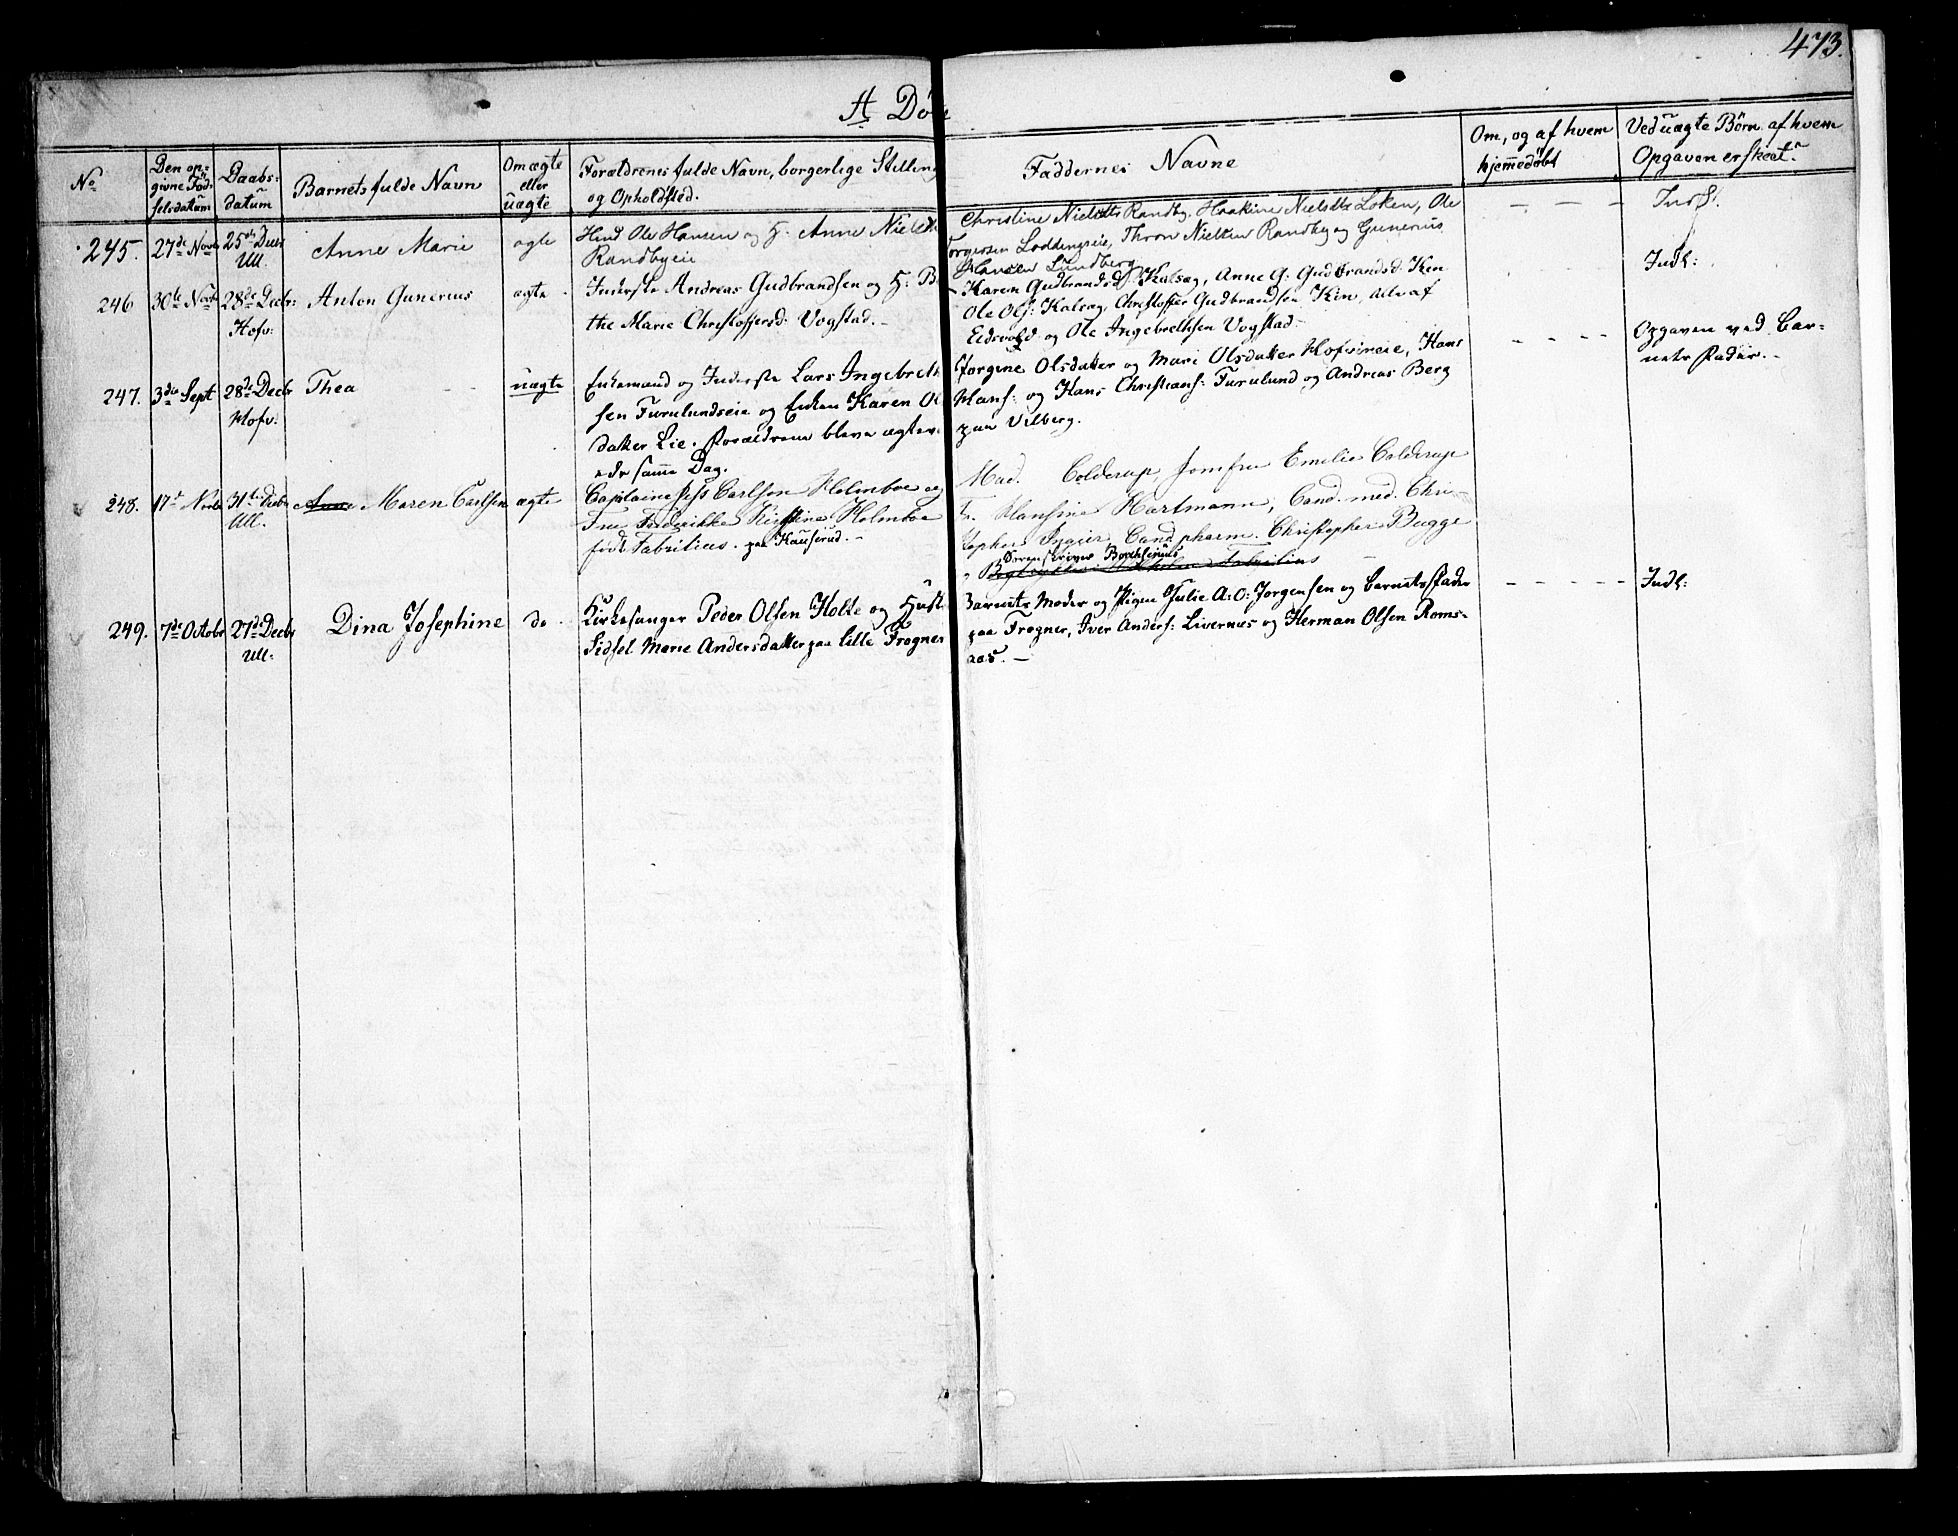 473.
A Dö
No
Den op-
givne Föd
selsdatum
Daabs-
datum
Barnets fulde Navn
Om ægte
eller
uægte
Forældrenes fulde Navn, borgerlige Stilling
og Opholdsted.
Faddernes Navne
Om, og af hvem
hjemmedöbt
Ved uægte Börn af hvem
Opgaven er skeat.
245. 27de Novb 25de Decbr Anne Marie ægte Hmd Ole Hansen og H. Anne Nielsd
Ull. Randbyeie
Christine Nielsdtr Randby, Haakine Nielsdtr Löken, Ole
Torgersen Loddengseie, Thron Nielsen Randby og Gunerius
Hansen Lundberg
- - - - Inds.
246 30te Novb 28de Decbr: Anton Gunerius ægte Inderste Andreas Gudbrandsen og H: B
Hofv: the Marie Christoffersd. Vogstad. -
Karen Gudbrandsd. Kulsæg, Anne G. Gudbrandsd. Ken
Ole Ols: Kalsæg, Christoffer Gudbrandsen Ken, alle af
Eidsvold og Ole Ingebrethsen Vogstad.
Inds:
247. 3die Sept 28de Decbr Thea uægte Enkemand og Inderste Lars Ingebreth
Hofv: sen Furulundseie og Enken Karen Ol
datter Lie. Forældrene bleve ægtevi
ede samme Dag.
Jörgine Olsdatter og Mari Olsdatter Hofvineie, Hans
Hans: og Hans Christians: Furulund og Andreas Berg
paa Vilberg.
- - - - Opgaven ved Bar-
nets Fader. -
248. 17d Novb 31te Decbr Anne Maren Carlsen ægte Capitaine Jess Carlsen Holmboe og
Ull. Frue Frederikke Kirstine Holmboe
född Fabritius. paa Hauserud. -
Mad. Colderup, Jomfru Emilie Colderup
Fr. Hansine Hartmann, Cand. med. Chri-
stopher Cand. pharm. Christopher Bugge
Sorenskriver Borchsenius
Fabritius
249. 7de Octobr 27de Decbr Dina Josephine do. Kirkesanger Peder Olsen Holte og Hust
Ull. Sidsel Marie Andersdatter paa lille Frogner
Barnets Moder og Pigen Julie A: O: Jorgensen og Barnets Fader
paa Frogner, Iver Anders: Livernes og Herman Olsen Roms-
aas. -
- - - - - Inds: